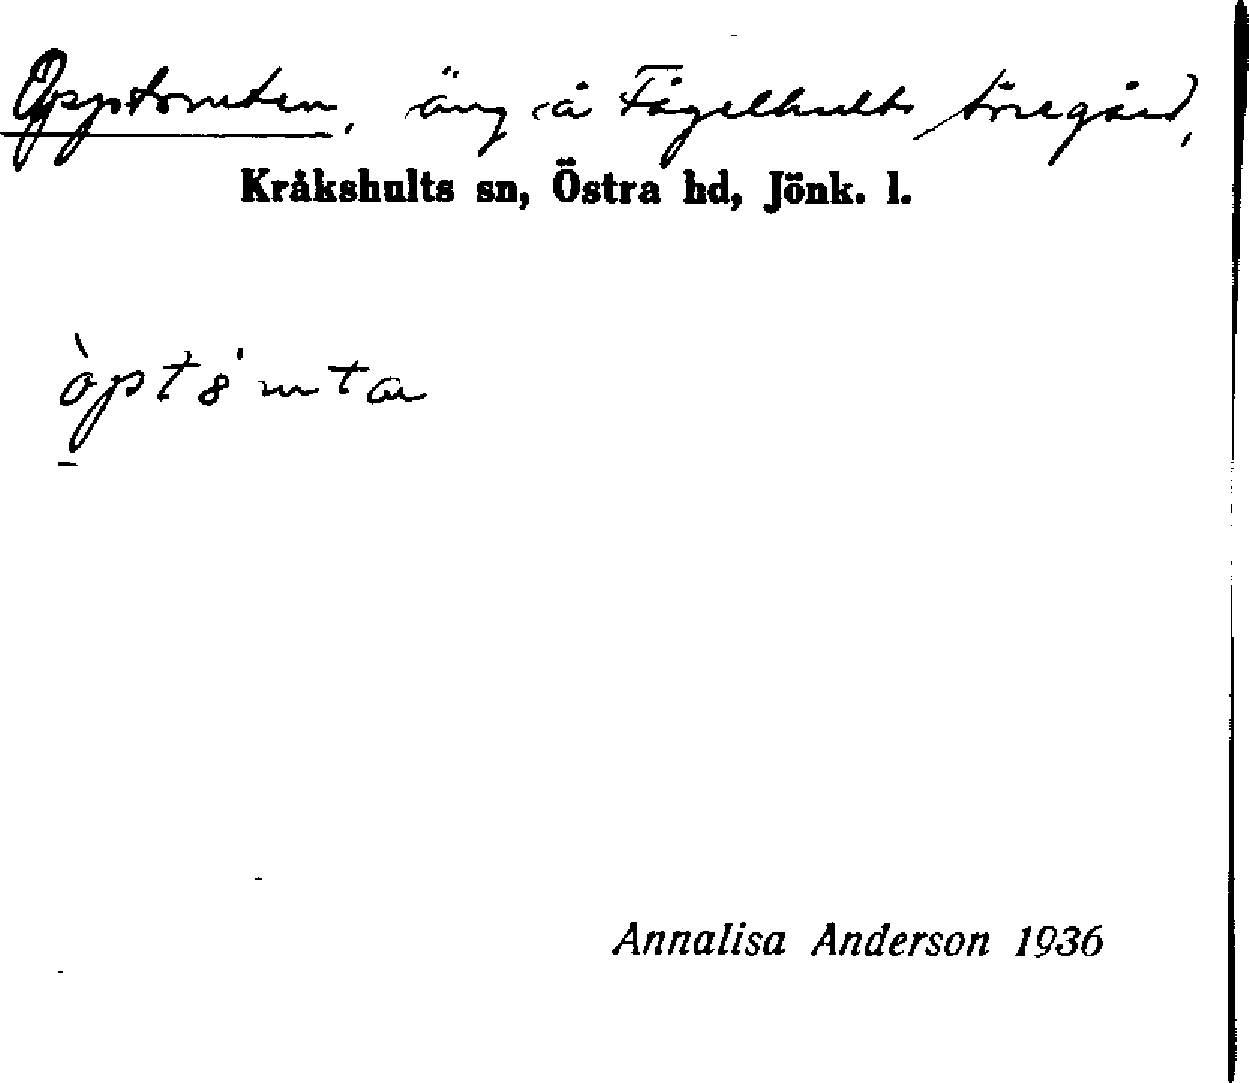 Opptomten, äng å Fågelhults Töregård,
Kråkshults sn, Östra hd, Jönk. l.
Annalisa Anderson 1936